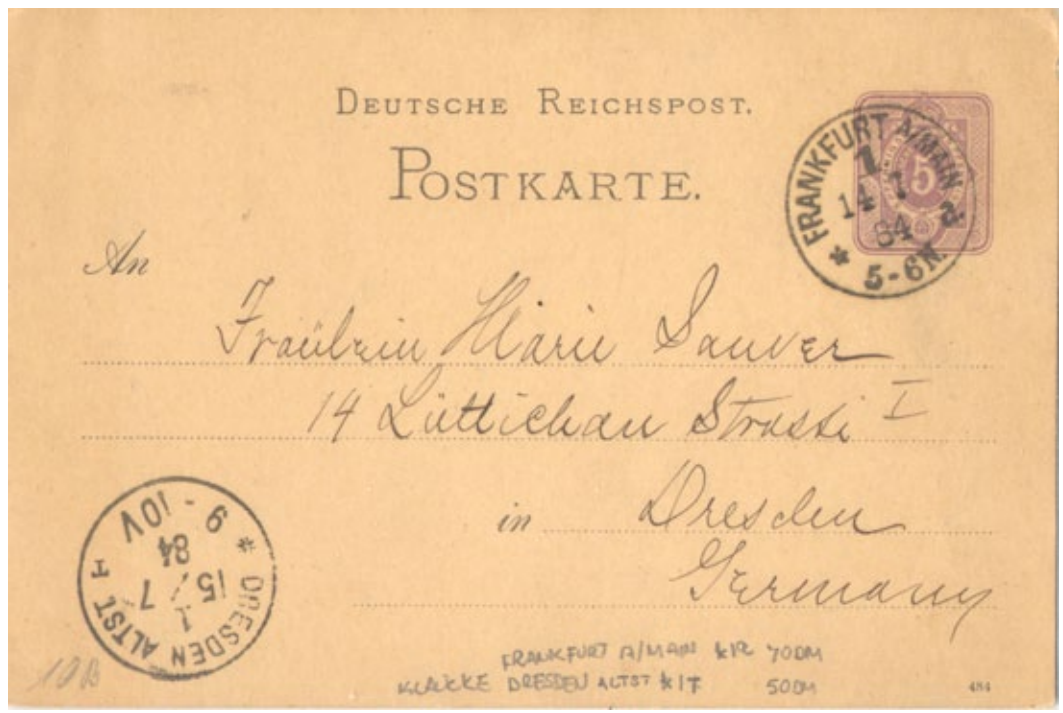 DEUTSCHE REICHSPOST.
POSTKARTE.
FRANKFURT A/MAIN
1.
14 7
84 a.
* 5-6N.
5
An
Fraülein Marie Sauver
14 Lüttichau Strasse I
in Dresden
Germany
* DRESDEN ALTST
1
15/7
84
9-10V
10B
FRANKFURT A/MAIN 70DM
KLAUCKE DRESDEN ALTST 50DM
484